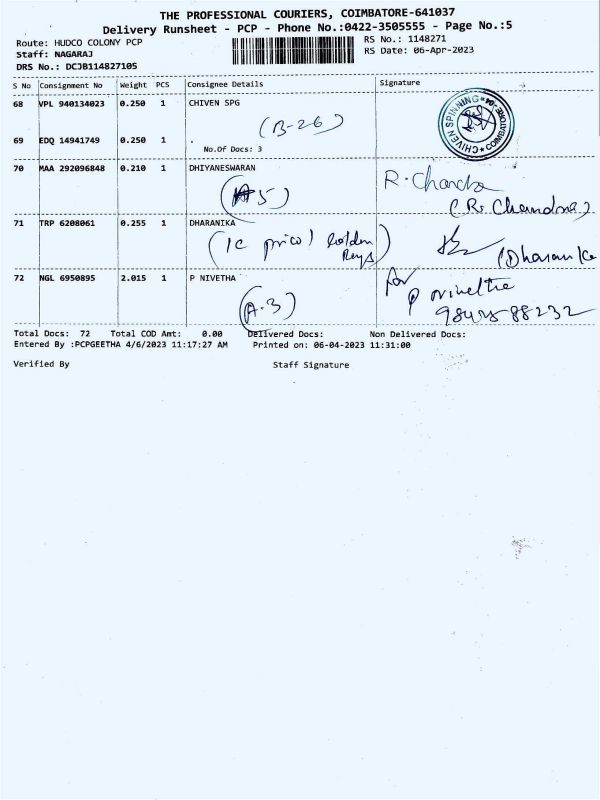 THE PROFESSIONAL COURIERS, COIMBATORE-641037
Delivery Runsheet - PCP - Phone No.:0422-3505555 - Page No.:5
Route: HUDCO COLONY PCP
Staff: NAGARAJ
DRS No.: DCJB114827105
RS No.: 1148271
RS Date: 06-Apr-2023
S No Consignment No Weight PCS Consignee Details Signature
68 VPL 940134023 0.250 1 CHIVEN SPG
(B-26)
CHIVEN SPINNING COIMBATORE
69 EDQ 14941749 0.250 1 .
No.Of Docs: 3
70 MAA 292096848 0.210 1 DHIYANESWARAN
(A5)
(R. Chandra)
71 TRP 6208061 0.255 1 DHARANIKA
(Dharanika
72 NGL 6950895 2.015 1 P NIVETHA
(A.3)
for
P nivetha
Total Docs: 72 Total COD Amt: 0.00 Delivered Docs: Non Delivered Docs:
Entered By :PCPGEETHA 4/6/2023 11:17:27 AM Printed on: 06-04-2023 11:31:00
Verified By Staff Signature